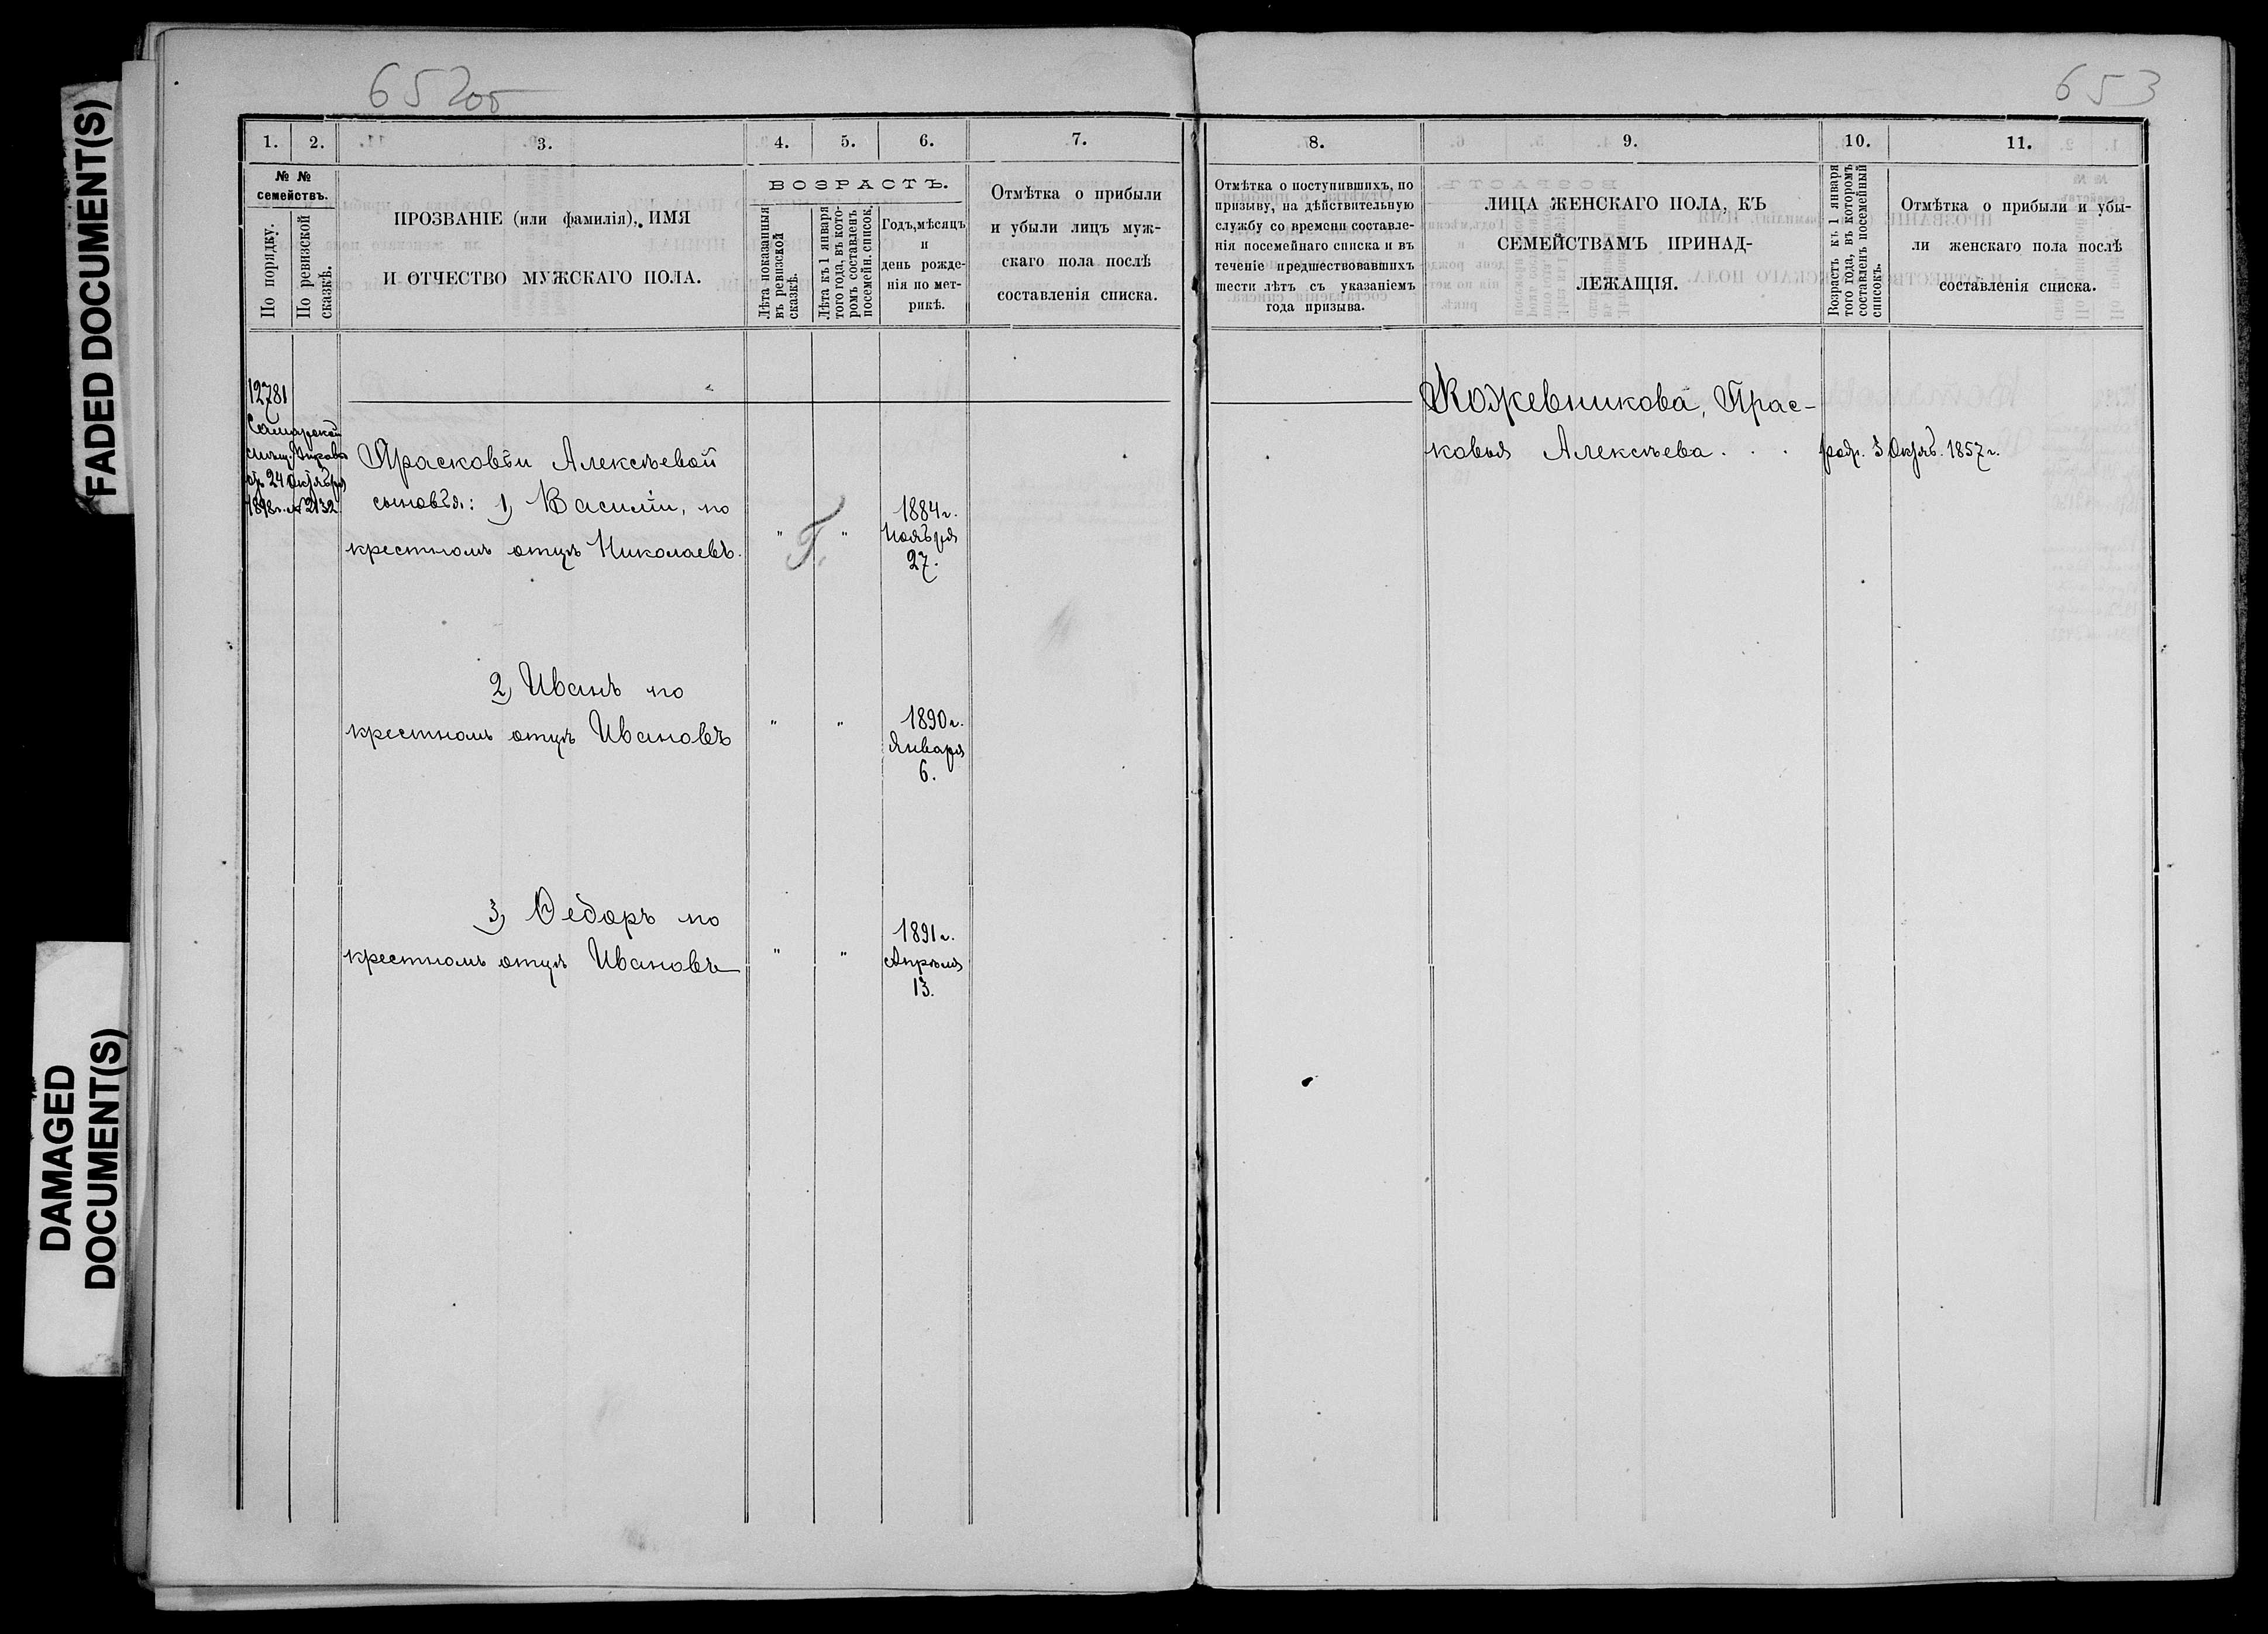 FADED DOCUMENT(S)
DAMAGED
DOCUMENT(S)
652об
1. 2. 3. 4. 5. 6. 7.
№ №
семействъ.
По порядку.
По ревизской
сказкѣ.
ПРОЗВАНІЕ (или фамилія), ИМЯ
И ОТЧЕСТВО МУЖСКАГО ПОЛА.
ВОЗРАСТЪ.
Лѣта показанныя
въ ревизской
сказкѣ.
Лѣта къ 1 января
того года, въ кото-
ромъ составленъ
посемейн. список.
Годъ, мѣсяцъ
и
день рожде-
нія по мет-
рикѣ.
Отмѣтка о прибыли
и убыли лицъ муж-
скаго пола послѣ
составленія списка.
12781
Самарской
Управы
отъ 24 Октября
1898г. № 2132
Прасковьи Алексѣевой
сыновья: 1) Василій, по
крестномъ отцѣ Николаевъ.
" Г. "
1884 г.
Ноября
27.
2) Иванъ по
крестномъ отцѣ Ивановъ
" "
1890 г.
Января
6.
3) Ѳедоръ по
крестномъ отцѣ Ивановъ
" "
1891 г.
Апрѣля
13.
653
8. 9. 10. 11.
Отмѣтка о поступившихъ, по
призыву, на дѣйствительную
службу со времени составле-
нія посемейнаго списка и въ
теченіе предшествовавшихъ
шести лѣтъ съ указаніемъ
года призыва.
ЛИЦА ЖЕНСКАГО ПОЛА, КЪ
СЕМЕЙСТВАМЪ ПРИНАД-
ЛЕЖАЩІЯ.
Возрастъ къ 1 января
того года, въ которомъ
составленъ посемейный
списокъ.
Отмѣтка о прибыли и убы-
ли женскаго пола послѣ
составленія списка.
Кожевникова, Прас-
ковья Алексѣева . . . род. 3 Октяб. 1857 г.